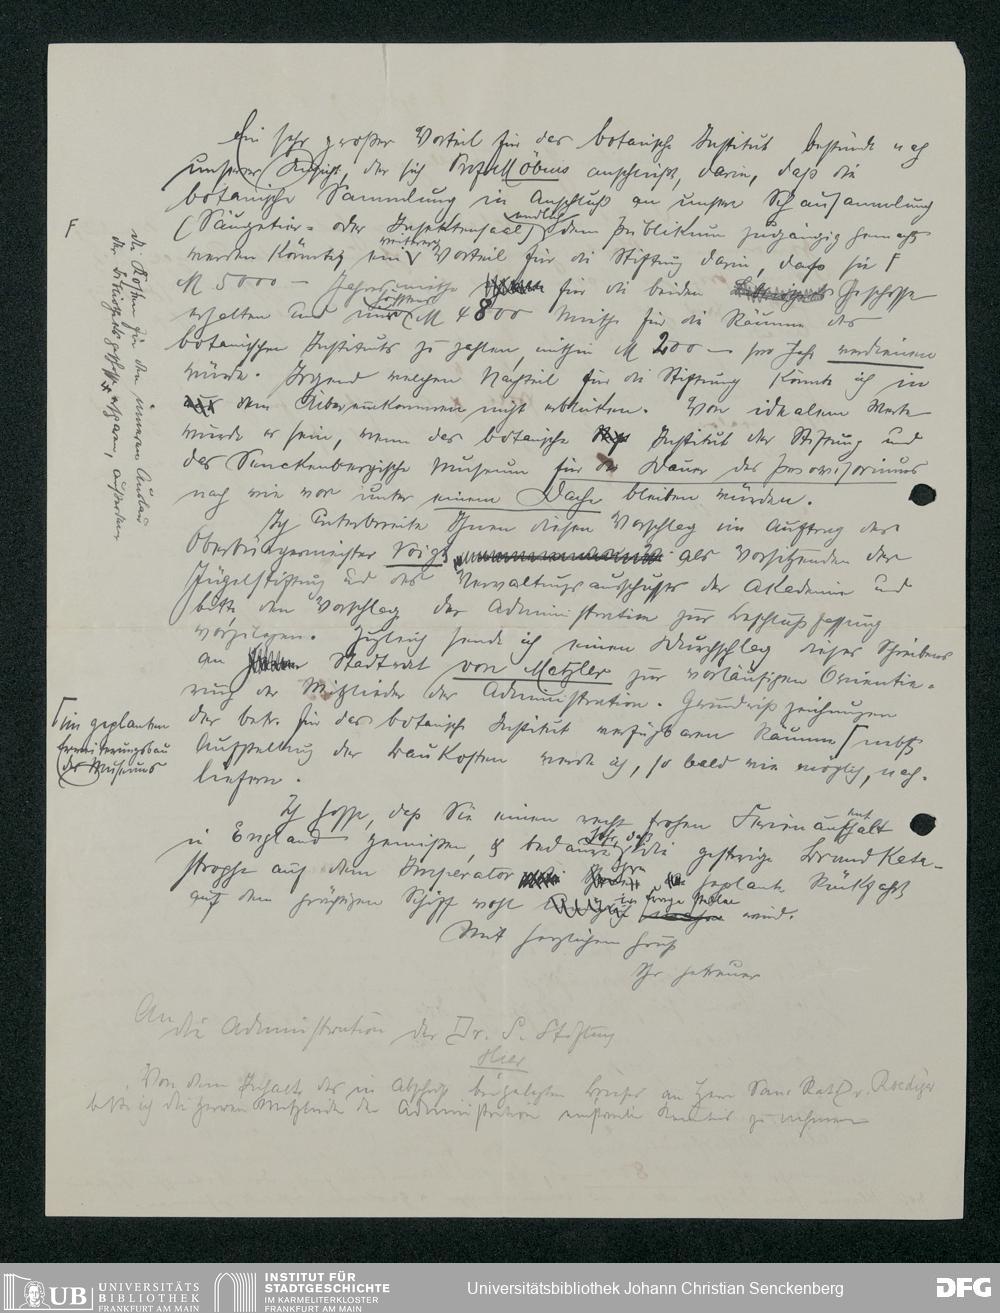 Ein sehr großer Vorteil für das botanische Institut bestünde nach
unserer Ansicht, der sich Prof. Möbius anschließt, darin, daß die
botanische Sammlung im Anschluß an unsere Schausammlung
(Säugetier- oder Insektensaal) endlich dem Publikum zugängig gemacht
werden könnte, ein weiterer Vorteil für die Stiftung darin, dass sie F
M 5000 — Jahresmiethe für die beiden Geschosse
erhalten und nur höchstens M 4800 Miethe für die Räume des
botanischen Instituts zu zahlen, mithin M 200 — pro Jahr verdienen
würde. Irgend welchen Nachteil für die Stiftung könnte ich in
dem Übereinkommen nicht erblicken. Von idealem Werte
würde es sein, wenn das botanische Institut der Stiftung und
das Senckenbergische Museum für die Dauer des Provisoriums
nach wie vor unter einem Dache bleiben würden.
Ich unterbreite Ihnen diesen Vorschlag im Auftrag des
Oberbürgermeister Voigt als Vorsitzenden der
Jügelstiftung und des Verwaltungsausschusses der Akademie und
bitte, den Vorschlag der Administration zur Beschlußfassung
vorzulegen. Zugleich sende ich einen Durchschlag dieses Schreibens
an Stadtrat von Metzler zur vorläufigen Orientie-
rung der Mitglieder der Administration. Grundrißzeichnungen
der betr. für das botanische Institut verfügbaren Räume ⌈ nebst
Aufstellung der Baukosten werde ich, so bald wie möglich, nach-
liefern.
Ich hoffe, daß Sie einen recht frohen Ferienaufenthalt
in England genießen, & bedaure sehr, daß die gestrige Brandkata-
strophe auf dem Imperator Ihre geplante Rückfahrt
auf dem prächtigen Schiff wohl in Frage stellen wird.
Mit herzlichem Gruß
Ihr getreuer
F
die Kosten für den inneren Ausbau
der Bibliotheksgeschosse ersparen, außerdem
⌈ im geplanten
Erweiterungsbau
des Museums
An
die Administration der Dr. S. Stiftung
Hier
Von dem Inhalt des in Abschrift beigelegten Briefes an Herrn San. Rat Dr. Roediger
bitte ich die Herren Mitglieder der Administration Kenntnis zu nehmen
UB UNIVERSITÄTS
BIBLIOTHEK
FRANKFURT AM MAIN
INSTITUT FÜR
STADTGESCHICHTE
IM KARMELITERKLOSTER
FRANKFURT AM MAIN
Universitätsbibliothek Johann Christian Senckenberg
DFG